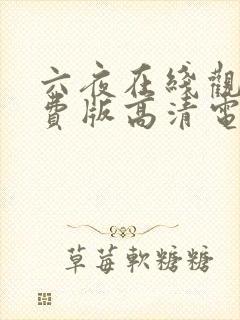 六夜在綫觀
費版高清電
草莓軟糖糖